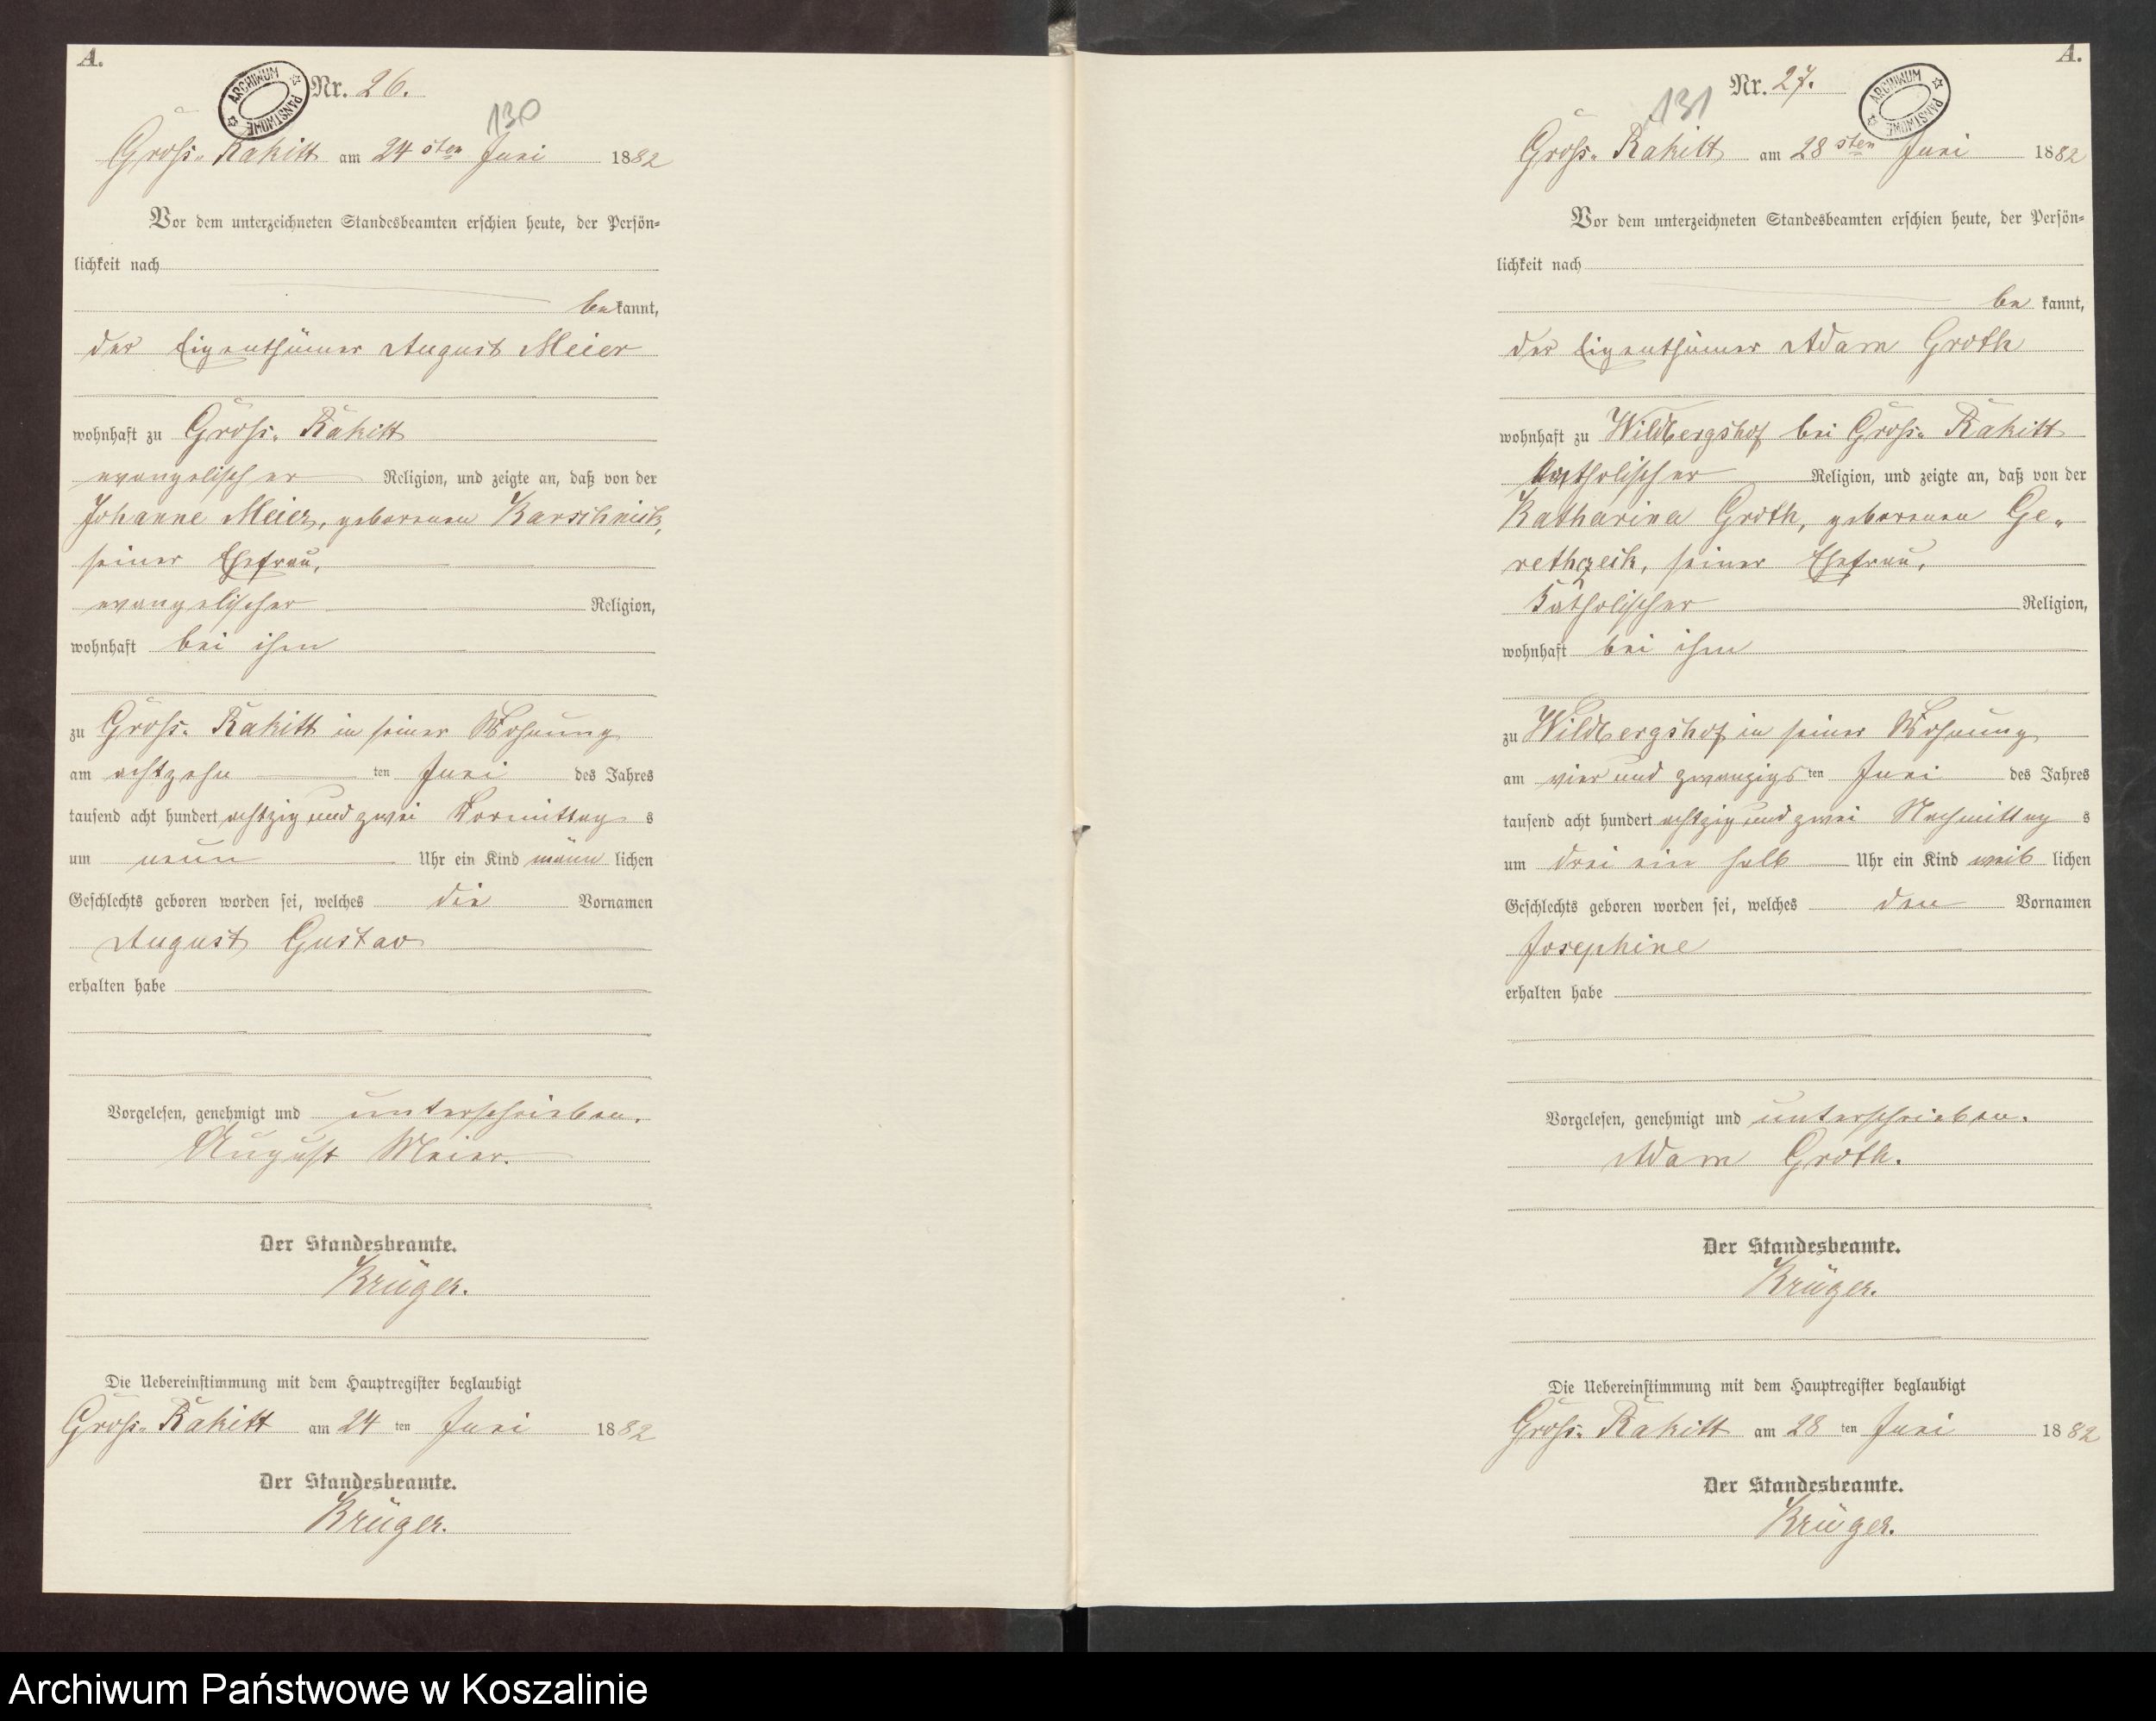 A.
Nr. 26.
ARCHIWUM PAŃSTWOWE
130
Groß-Rakitt am 24 sten Juni 1882
Vor dem unterzeichneten Standesbeamten erschien heute, der Persön-
lichkeit nach
bekannt,
der Eigenthümer August Meier
wohnhaft zu Groß-Rakitt
evangelischer Religion, und zeigte an, daß von der
Johanne Meier, geborenen Karschnick,
seiner Ehefrau,
evangelischer Religion,
wohnhaft bei ihm
zu Groß-Rakitt in seiner Wohnung
am achtzehn ten Juni des Jahres
tausend acht hundert achtzig und zwei Vormittags
um neun Uhr ein Kind männlichen
Geschlechts geboren worden sei, welches die Vornamen
August Gustav
erhalten habe
Vorgelesen, genehmigt und unterschrieben.
August Meier.
Der Standesbeamte.
Krüger.
Die Uebereinstimmung mit dem Hauptregister beglaubigt
Groß-Rakitt am 24 ten Juni 1882
Der Standesbeamte.
Krüger.
A.
Nr. 27.
ARCHIWUM PAŃSTWOWE
131
Groß-Rakitt am 28 sten Juni 1882
Vor dem unterzeichneten Standesbeamten erschien heute, der Persön-
lichkeit nach
bekannt,
der Eigenthümer Adam Groth
wohnhaft zu Wildbergshof bei Groß-Rakitt
katholischer Religion, und zeigte an, daß von der
Katharina Groth, geborenen Ge-
rethzeck, seiner Ehefrau,
katholischer Religion,
wohnhaft bei ihm
zu Wildbergshof in seiner Wohnung
am vier und zwanzigsten Juni des Jahres
tausend acht hundert achtzig und zwei Nachmittags
um drei ein halb Uhr ein Kind weiblichen
Geschlechts geboren worden sei, welches den Vornamen
Josephine
erhalten habe
Vorgelesen, genehmigt und unterschrieben.
Adam Groth.
Der Standesbeamte.
Krüger.
Die Uebereinstimmung mit dem Hauptregister beglaubigt
Groß-Rakitt am 28 ten Juni 1882
Der Standesbeamte.
Krüger.
Archiwum Państwowe w Koszalinie